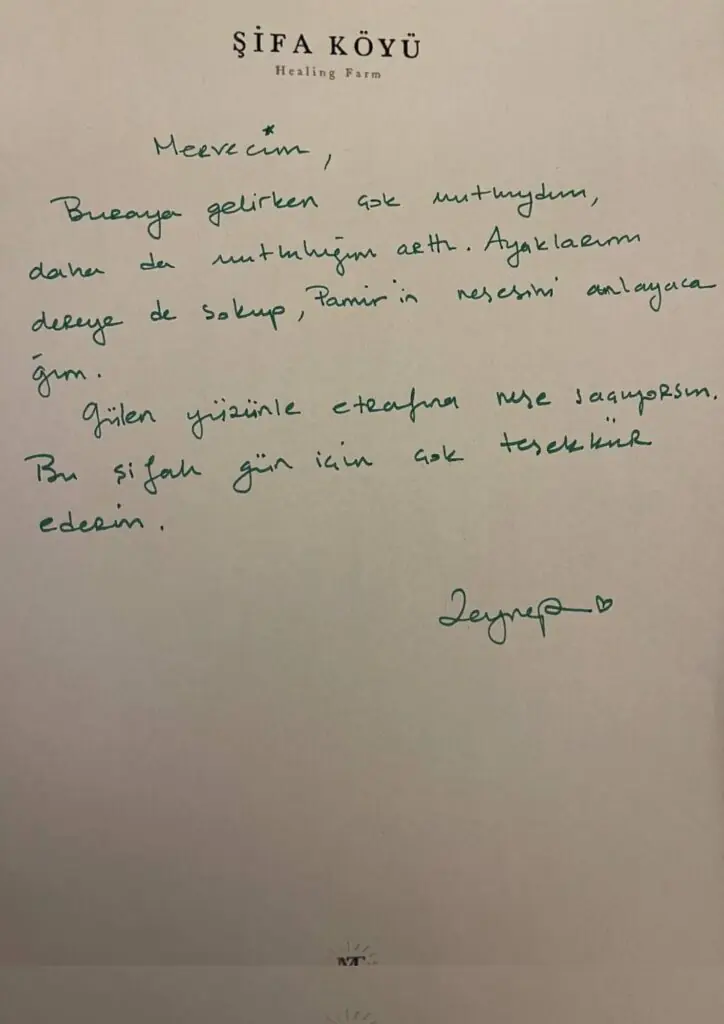 ŞİFA KÖYÜ
Healing Farm
Mervecim,
Buraya gelirken çok mutluydum,
daha da mutluluğum arttı. Ayaklarımı
dereye de sokup, Pamir'in neşesini anlayaca
ğım.
Gülen yüzünle etrafına neşe saçıyorsun.
Bu şifalı gün için çok teşekkür
ederim.
Zeynep